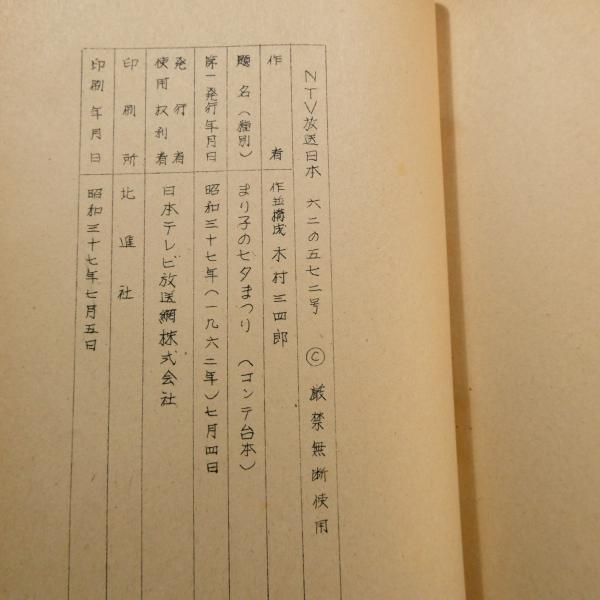 NTV放送日本 六二の五七二号 Ⓒ 厳禁無断使用
作者 作並構成 木村三四郎
題名(種別) まり子の七夕まつり (コンテ台本)
第一発行年月日 昭和三十七年(一九六二年)七月四日
発行者
使用権利者 日本テレビ放送網株式会社
印刷所 北進社
印刷年月日 昭和三十七年七月五日